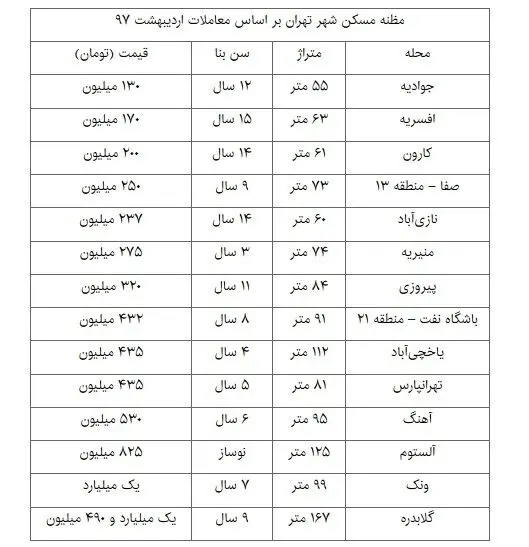 مظنه مسکن شهر تهران بر اساس معاملات اردیبهشت ۹۷
محله متراژ سن بنا قیمت (تومان)
جوادیه ۵۵ متر ۱۲ سال ۱۳۰ میلیون
افسریه ۶۳ متر ۱۵ سال ۱۷۰ میلیون
کارون ۶۱ متر ۱۴ سال ۲۰۰ میلیون
صفا – منطقه ۱۳ ۷۳ متر ۹ سال ۲۵۰ میلیون
نازی‌آباد ۶۰ متر ۱۴ سال ۲۳۷ میلیون
منیریه ۷۴ متر ۳ سال ۲۷۵ میلیون
پیروزی ۸۴ متر ۱۱ سال ۳۲۰ میلیون
باشگاه نفت – منطقه ۲۱ ۹۱ متر ۸ سال ۴۳۲ میلیون
یاخچی‌آباد ۱۱۲ متر ۴ سال ۴۳۵ میلیون
تهرانپارس ۸۱ متر ۵ سال ۴۳۵ میلیون
آهنگ ۹۵ متر ۶ سال ۵۳۰ میلیون
آلستوم ۱۲۵ متر نوساز ۸۲۵ میلیون
ونک ۹۹ متر ۷ سال یک میلیارد
گلابدره ۱۶۷ متر ۹ سال یک میلیارد و ۴۹۰ میلیون